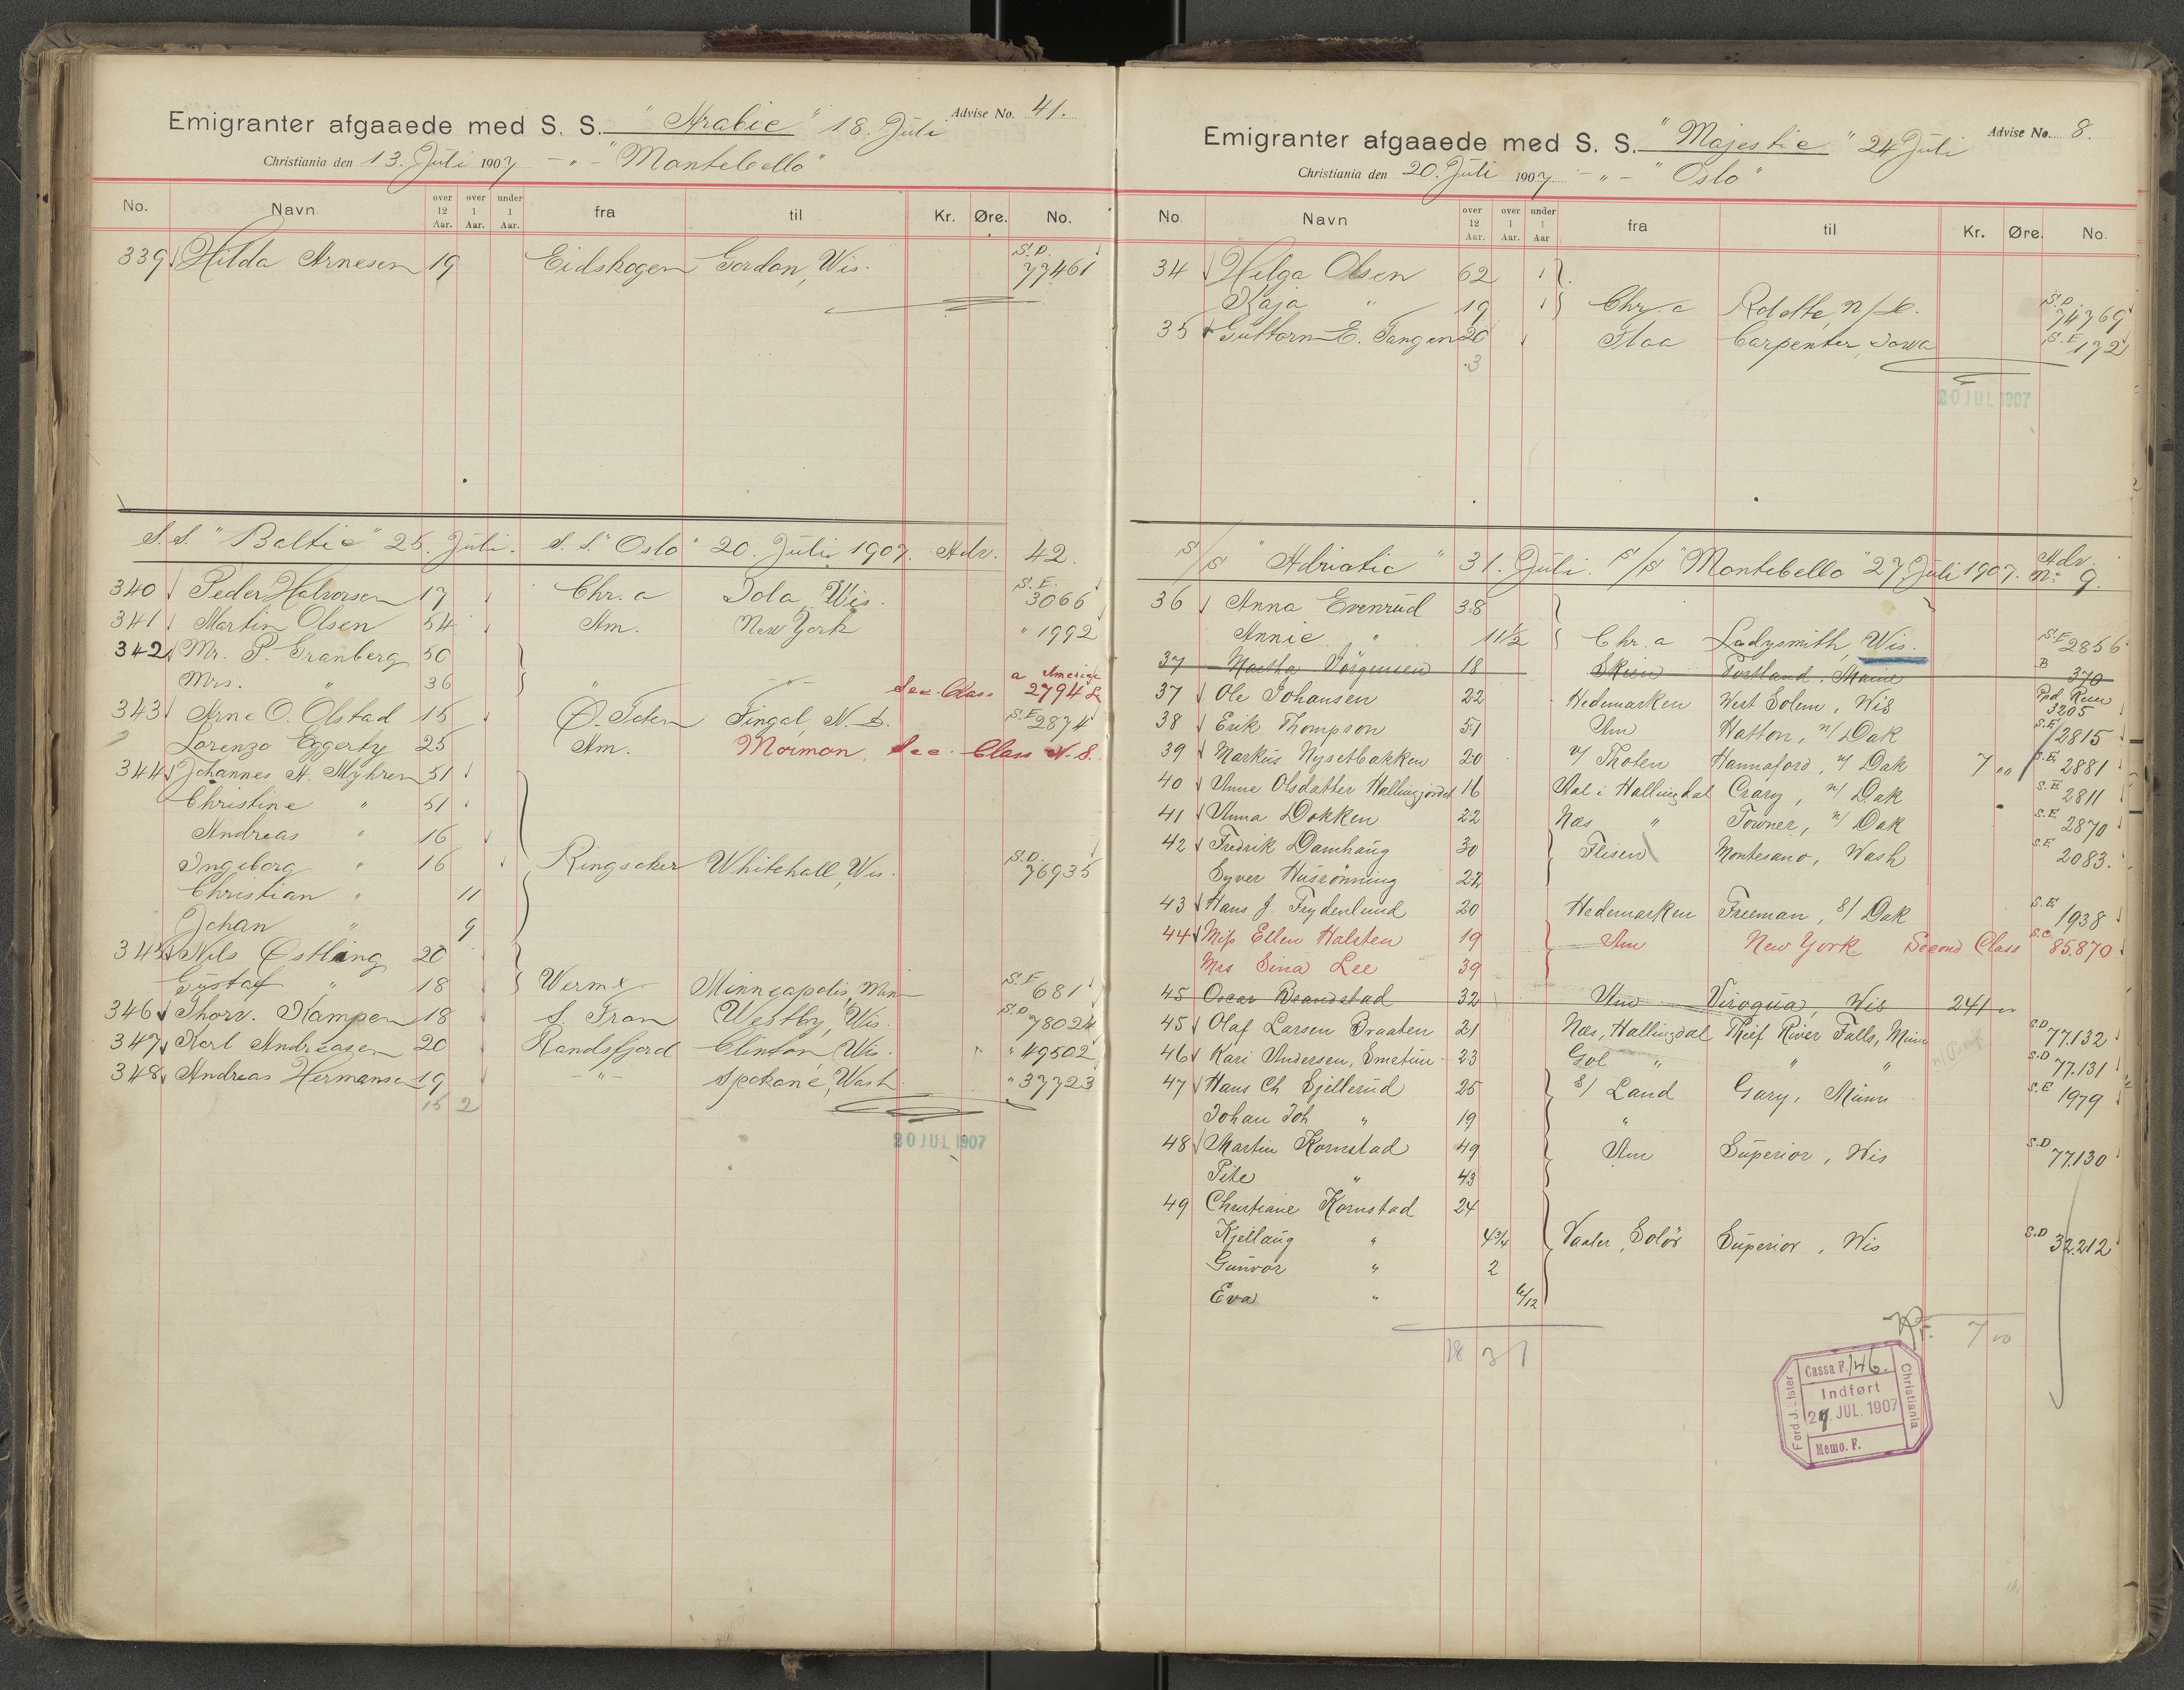 Emigranter afgaaede med S. S. "Arabic" 18. Juli Advise No. 41.
Christiania den 13. Juli 1907 - " - "Montebello"
No. Navn over 12 Aar. over 1 Aar. under 1 Aar. fra til Kr. Øre. No.
339 Hilda Arnesen 19 Eidskogen Gordon, Wis. S.D. 77461
S.S. "Baltic" 25. Juli. S.S. "Oslo" 20. Juli 1907. Adv. 42.
340 Peder Halvorsen 17 Chr.a Iola, Wis. S.E. 3066
341 Martin Olsen 54 Am. New York " 1992
342 Mr. P. Granberg 50
Mrs. " 36 " - " - Sec. Class a Amerige 2794 L
343 Arne O. Olstad 15 Ø. Toten Fingal, N. D. S.E. 2874
Lorenzo Eggerty 25 Am. Mormon. Sec. Class N.S.
344 Johannes A. Myhren 51
Christine " 51
Andreas " 16
Ingeborg " 16 Ringsaker Whitehall, Wis. S.D. 76935
Christian " 11
Johan " 9
345 Nils Östling 20
Gustaf " 18 Werml. Minneapolis, Minn S.E. 681
346 Thorv. Kampen 18 S. Fron Westby, Wis. S.D. 78024
347 Karl Andreasen 20 Randsfjord Clinton, Wis. " 49502
348 Andreas Hermansen 19 - " - Spokane, Wash. " 37723
15 2
20 JUL 1907
Emigranter afgaaede med S. S. "Majestic" 24 Juli Advise No. 8.
Christiania den 20. Juli 1907 - " - "Oslo"
No. Navn over 12 Aar. over 1 Aar. under 1 Aar fra til Kr. Øre. No.
34 Helga Olsen 62
Kaja " 19 Chr.a Rolette, N/D. S.D. 74769
35 Guttorm E. Tangen 20 Flaa Carpenter, Iowa S.E. 172
3
20 JUL 1907
S/S "Adriatic" 31. Juli. S/S "Montebello" 27. Juli 1907. Adv. No. 9.
36 Anna Evenrud 38
Annie " 11 1/2 Chr.a Ladysmith, Wis. S.E 2856
37 Martha Jörgensen 18 Skien Portland, Maine B 370
37 Ole Johansen 22 Hedemarken West Salem, Wis 3205
38 Erik Thompson 51 Am Hatton, N/ Dak S.E. 2815
39 Markus Nysetbakken 20 V/ Thoten Hannaford, N/ Dak 7 " S.E. 2881
40 Anne Olsdatter Hallingjordet 16 Aal i Hallingdal Crary, N/ Dak S.E 2811
41 Anna Dokken 22 Næs " Towner, N/ Dak S.E. 2870
42 Fredrik Damhaug 30 Flisen Montesano, Wash S.E 2083.
Syver Husrönning 22
43 Hans J. Frydenlund 20 Hedemarken Freeman, S/ Dak S.E. 1938
44 Miss Ellen Halsten 19 Am New York Second Class S.C. 85.870
Mrs Sina Lee 39
45 Oscar Brandstad 32 Am Viroqua, Wis 241 "
45 Olaf Larsen Braaten 21 Næs, Hallingdal Thief River Falls, Minn S.D 77.132
46 Kari Andersen, Smetun 23 Gol " " " S.D 77.131
47 Hans Ch Gjellerud 25 S/ Land Gary, Minn S.E 1979
Johan Joh " 19 "
48 Martin Kornstad 49 Am Superior, Wis S.D 77.130
Pite " 43
49 Christiane Kornstad 24
Kjellaug " 4 3/4 Vaaler, Solör Superior, Wis S.D 32.212
Gunvor " 2
Eva " 6/12
18 3 1
Kr. 7 00
Cassa F. 146.
Indført
27. JUL. 1907
Memo. F.
Ferd J. Lister
Christiania